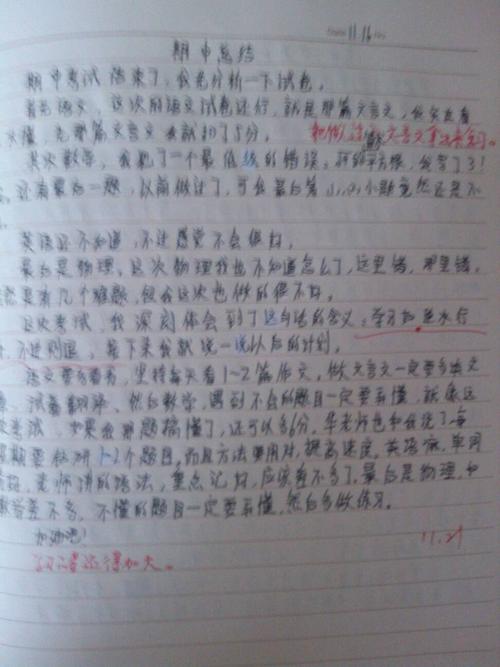 11.16
期中总结
期中考试结束了，我先分析一下试卷。
首先语文，这次的语文试卷还行，就是那篇文言文，我没去看
不懂，光那篇文言文我就扣了5分。
其次数学，我犯了一个最低级的错误：
还有最后一题，以前做过了，可我最后第 小题竟然还是不
英语还不知道，不过感觉不会很好。
最后是物理，这次物理我也不知道怎么了，这里错，那里错，
就是有几个难题，但我这次也做的很不好。
这次考试，我深刻体会到了这句话的含义：学习如逆水行
舟，不进则退。接下来我就说一说以后的计划。
语文要多看书，坚持每天看1~2篇作文，做文言文一定要多读文
章，试着翻译。然后数学，遇到不会的题目一定要弄懂，就像这
次考试，如果我那题搞懂了，还可以多6分，华老师也和我说了，每
星期要钻研1~2个题目，而且方法要用对，提高速度。英语嘛，单词
老师讲的语法，重点记好，应该差不多了。最后是物理，和
数学差不多，不懂的题目一定要弄懂，然后多做练习。
加油吧！
11.21
学习还得加大。